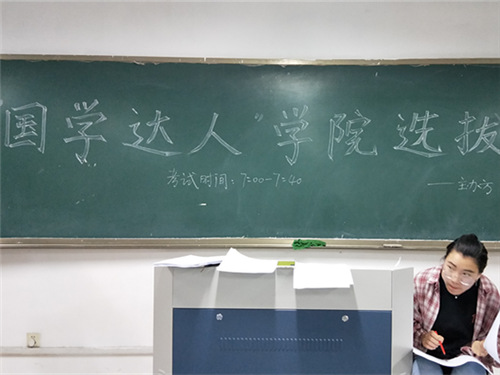 "国学达人"学院选拔
考试时间:7:00-7:40
——主办方